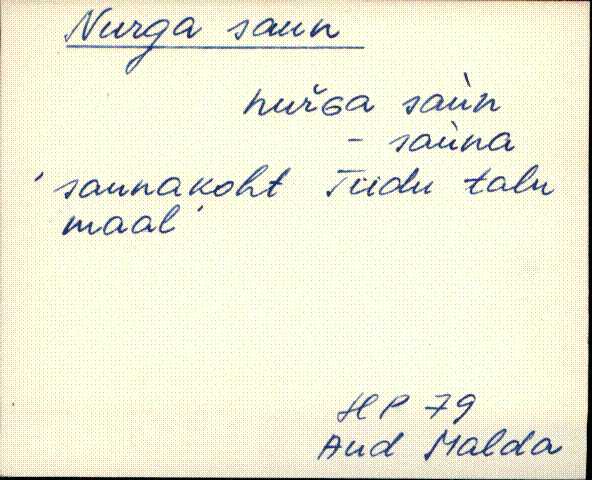 Nurga saun
nuřGa saùn
- saùna
'saunakoht Tiidu talu
maal'
HP 79
And Malda